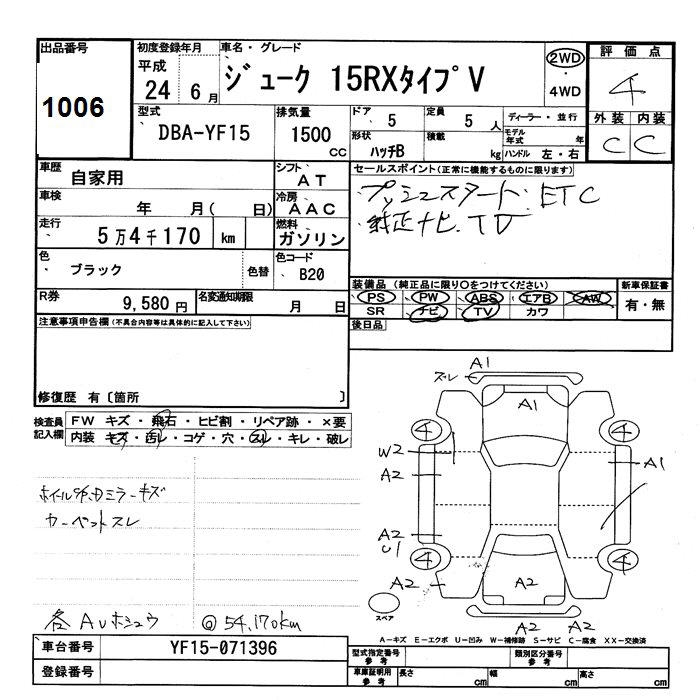 出品番号
1006
初度登録年月
平成
24 6月
車名・グレード
ジューク 15RXタイプV
2WD
・
4WD
評価点
4
外装 内装
C C
型式
DBA-YF15
排気量
1500
CC
ドア 5
定員 5 人
形状 ハッチB
積載 kg
ディーラー・並行
モデル年式 年
ハンドル 左・右
車歴
自家用
シフト
AT
車検
年 月( 日)
冷房
AAC
走行
5万4千170 km
燃料
ガソリン
色
ブラック
色替
色コード
B20
R券
9,580円
名変通知期限
月 日
セールスポイント(正常に機能するものに限ります)
プッシュスタート・ETC
純正ナビ.TV
装備品(純正品に限り〇をつけてください)
PS PW ABS エアB AW
SR ナビ TV カワ
新車保証書
有・無
後日品
注意事項申告欄(不具合内容等は具体的に記入して下さい)
修復歴 有〔箇所 〕
検査員
記入欄
FW キズ・飛石・ヒビ割・リペア跡・×要
内装 キズ・汚レ・コゲ・穴・スレ・キレ・破レ
ミラーキズ
カーペットスレ
各AUホシュウ
@54.170km
A1
スレ
A1
4 4
W2
A2
A1
A2
U1
4 4
A2
A2
A2 A2
スペア
A−キズ E−エクボ U−凹み W−補修跡 S−サビ C−腐食 XX−交換済
車台番号
YF15-071396
登録番号
型式指定番号
参考
類別区分番号
参考
車庫証明用
参考
長さ cm
幅 cm
高さ cm